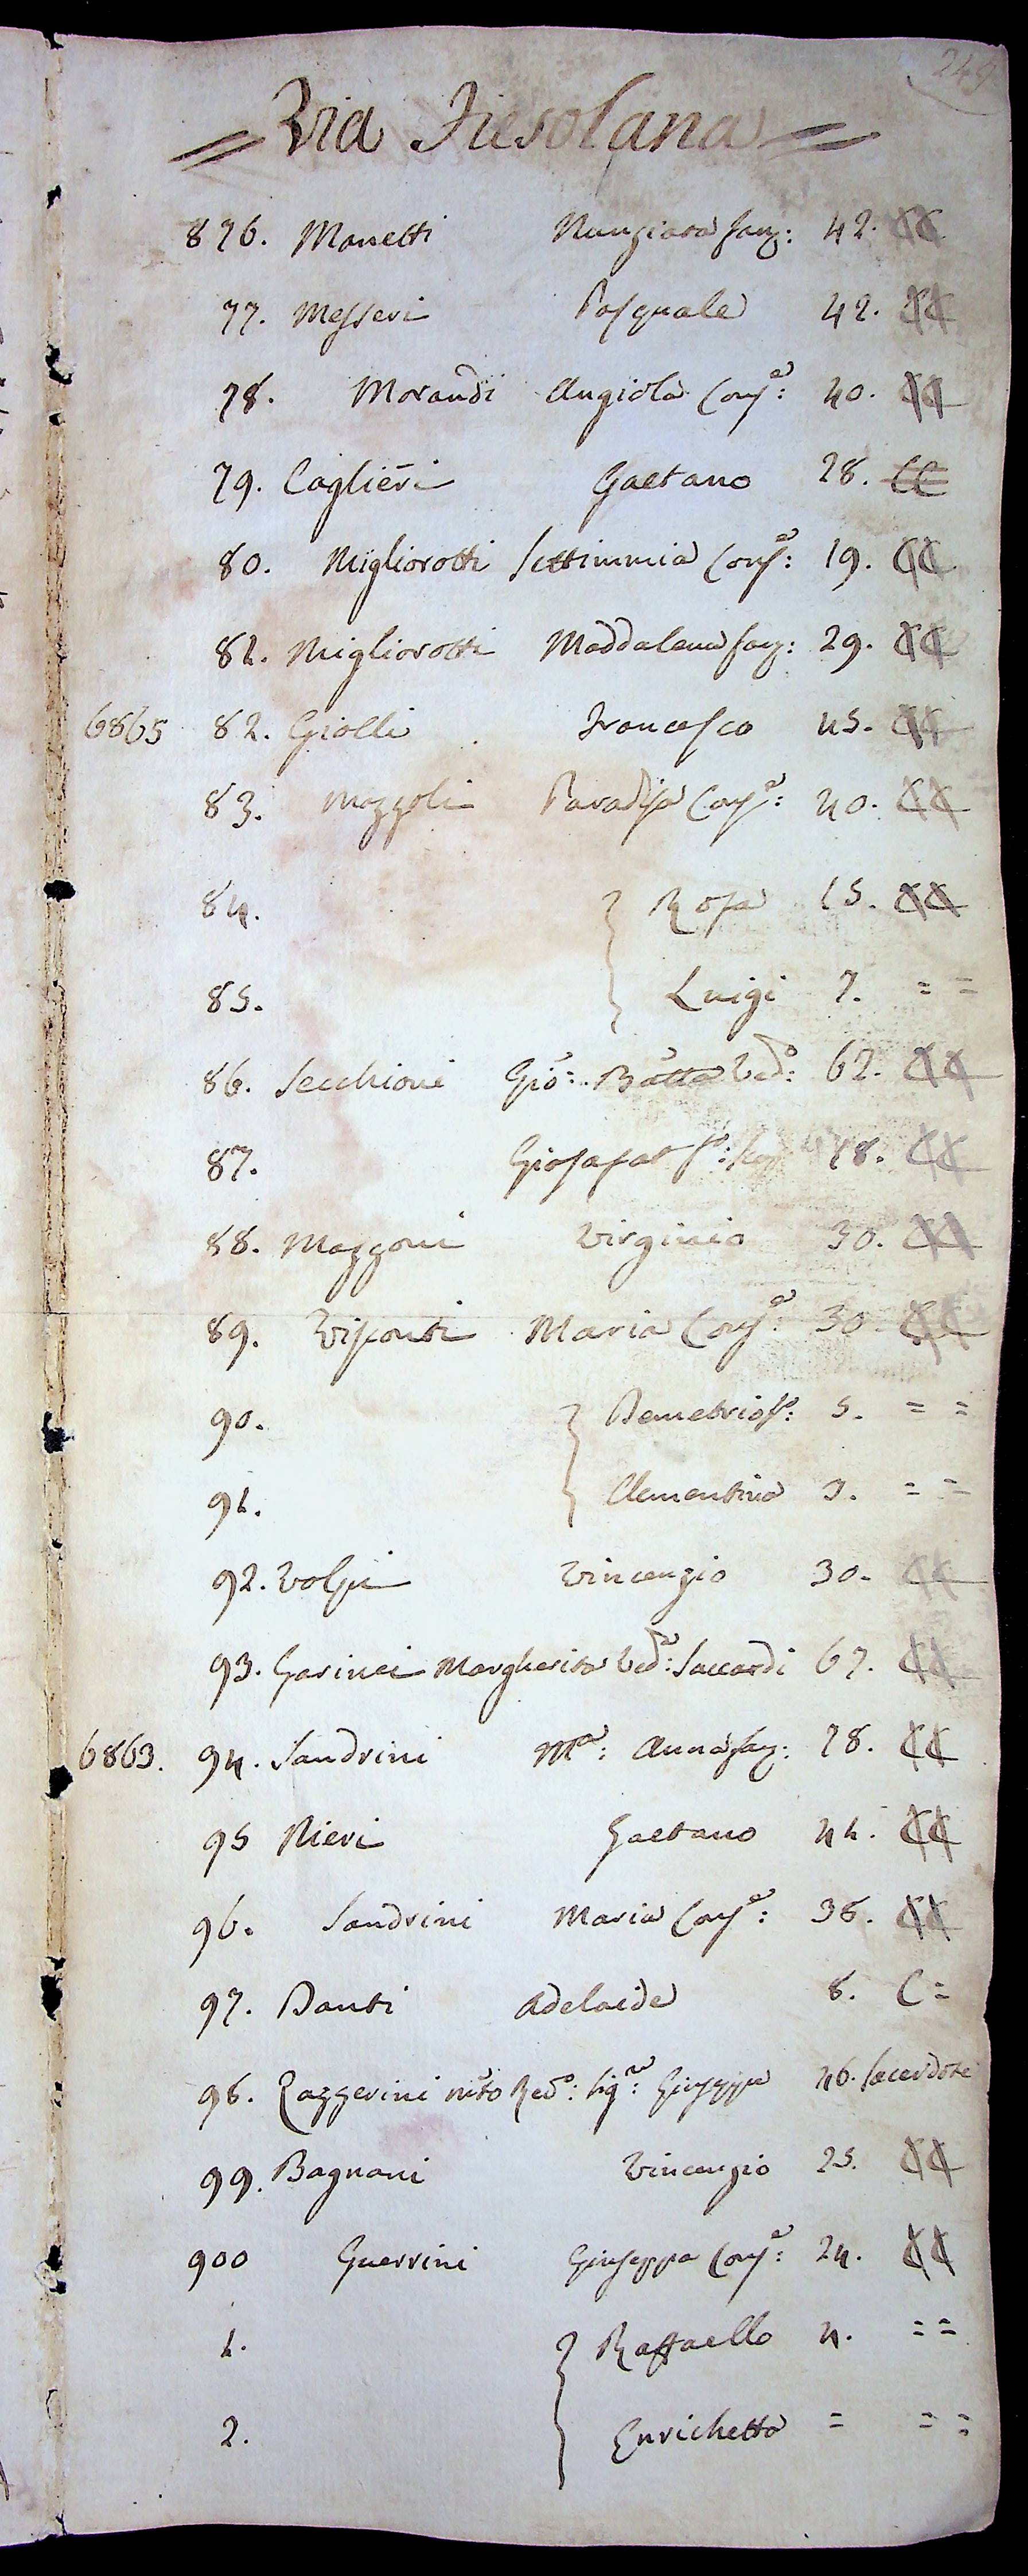 249
= Via Fiesolana =
876. Manetti Nunziata fanz: 42. CC
77. Messeri Pasquale 42. CC
78. Morandi Angiola Consᵉ: 40. CC
79. Caglieri Gaetano 28. CC
80. Migliorotti Settimmia Consᵉ: 19. CC
81. Migliorotti Maddalena fanz: 29. CC
6865 82. Giolli Francesco 45. CC
83. Mazzoli Paradisa Consᵉ: 40. CC
84. } Rosa 15. CC
85. } Luigi 7. = =
86. Secchioni Gio: Batta Vedᵒ: 62. CC
87. Giosafat fᵒ: 28. CC
88. Mazzoni Virginio 30. CC
89. Visconti Maria Consᵉ: 30. CC
90. } Demetrio fᵒ: 5. = =
91. } Clementina 3. = =
92. Volpi Vincenzio 30. CC
93. Garinei Margherita Vedᵃ: Saccardi 67. CC
6863. 94. Sandrini Mᵃ: Anna fanz: 28. CC
95 Nieri Gaetano 41. CC
96. Sandrini Maria Consᵉ: 36. CC
97. Danti Adelaide 8. C =
98. Razzerini mto Redᵒ: Sigʳᵉ: Giuseppe 46. Sacerdote
99. Bagnani Vincenzio 25. CC
900 Guerrini Giuseppa Consᵉ: 24. CC
1. } Raffaello 4. = =
2. } Enrichetta = = =